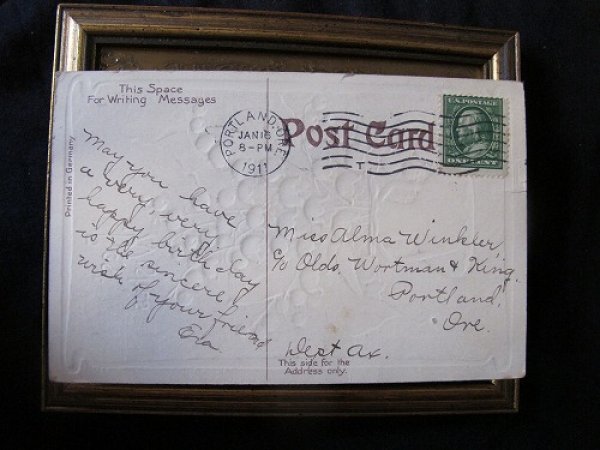 This Space
For Writing Messages
Printed in Germany
PORTLAND, ORE.
JAN 16
8-PM
1911
Post Card
U.S. POSTAGE
ONE CENT
May you have
a very, very
happy birthday
is the sincere
wish of your friend
Era
Miss Alma Winkler,
c/o Olds, Wortman & King.
Portland,
Ore.
Dept Ax.
This side for the
Address only.